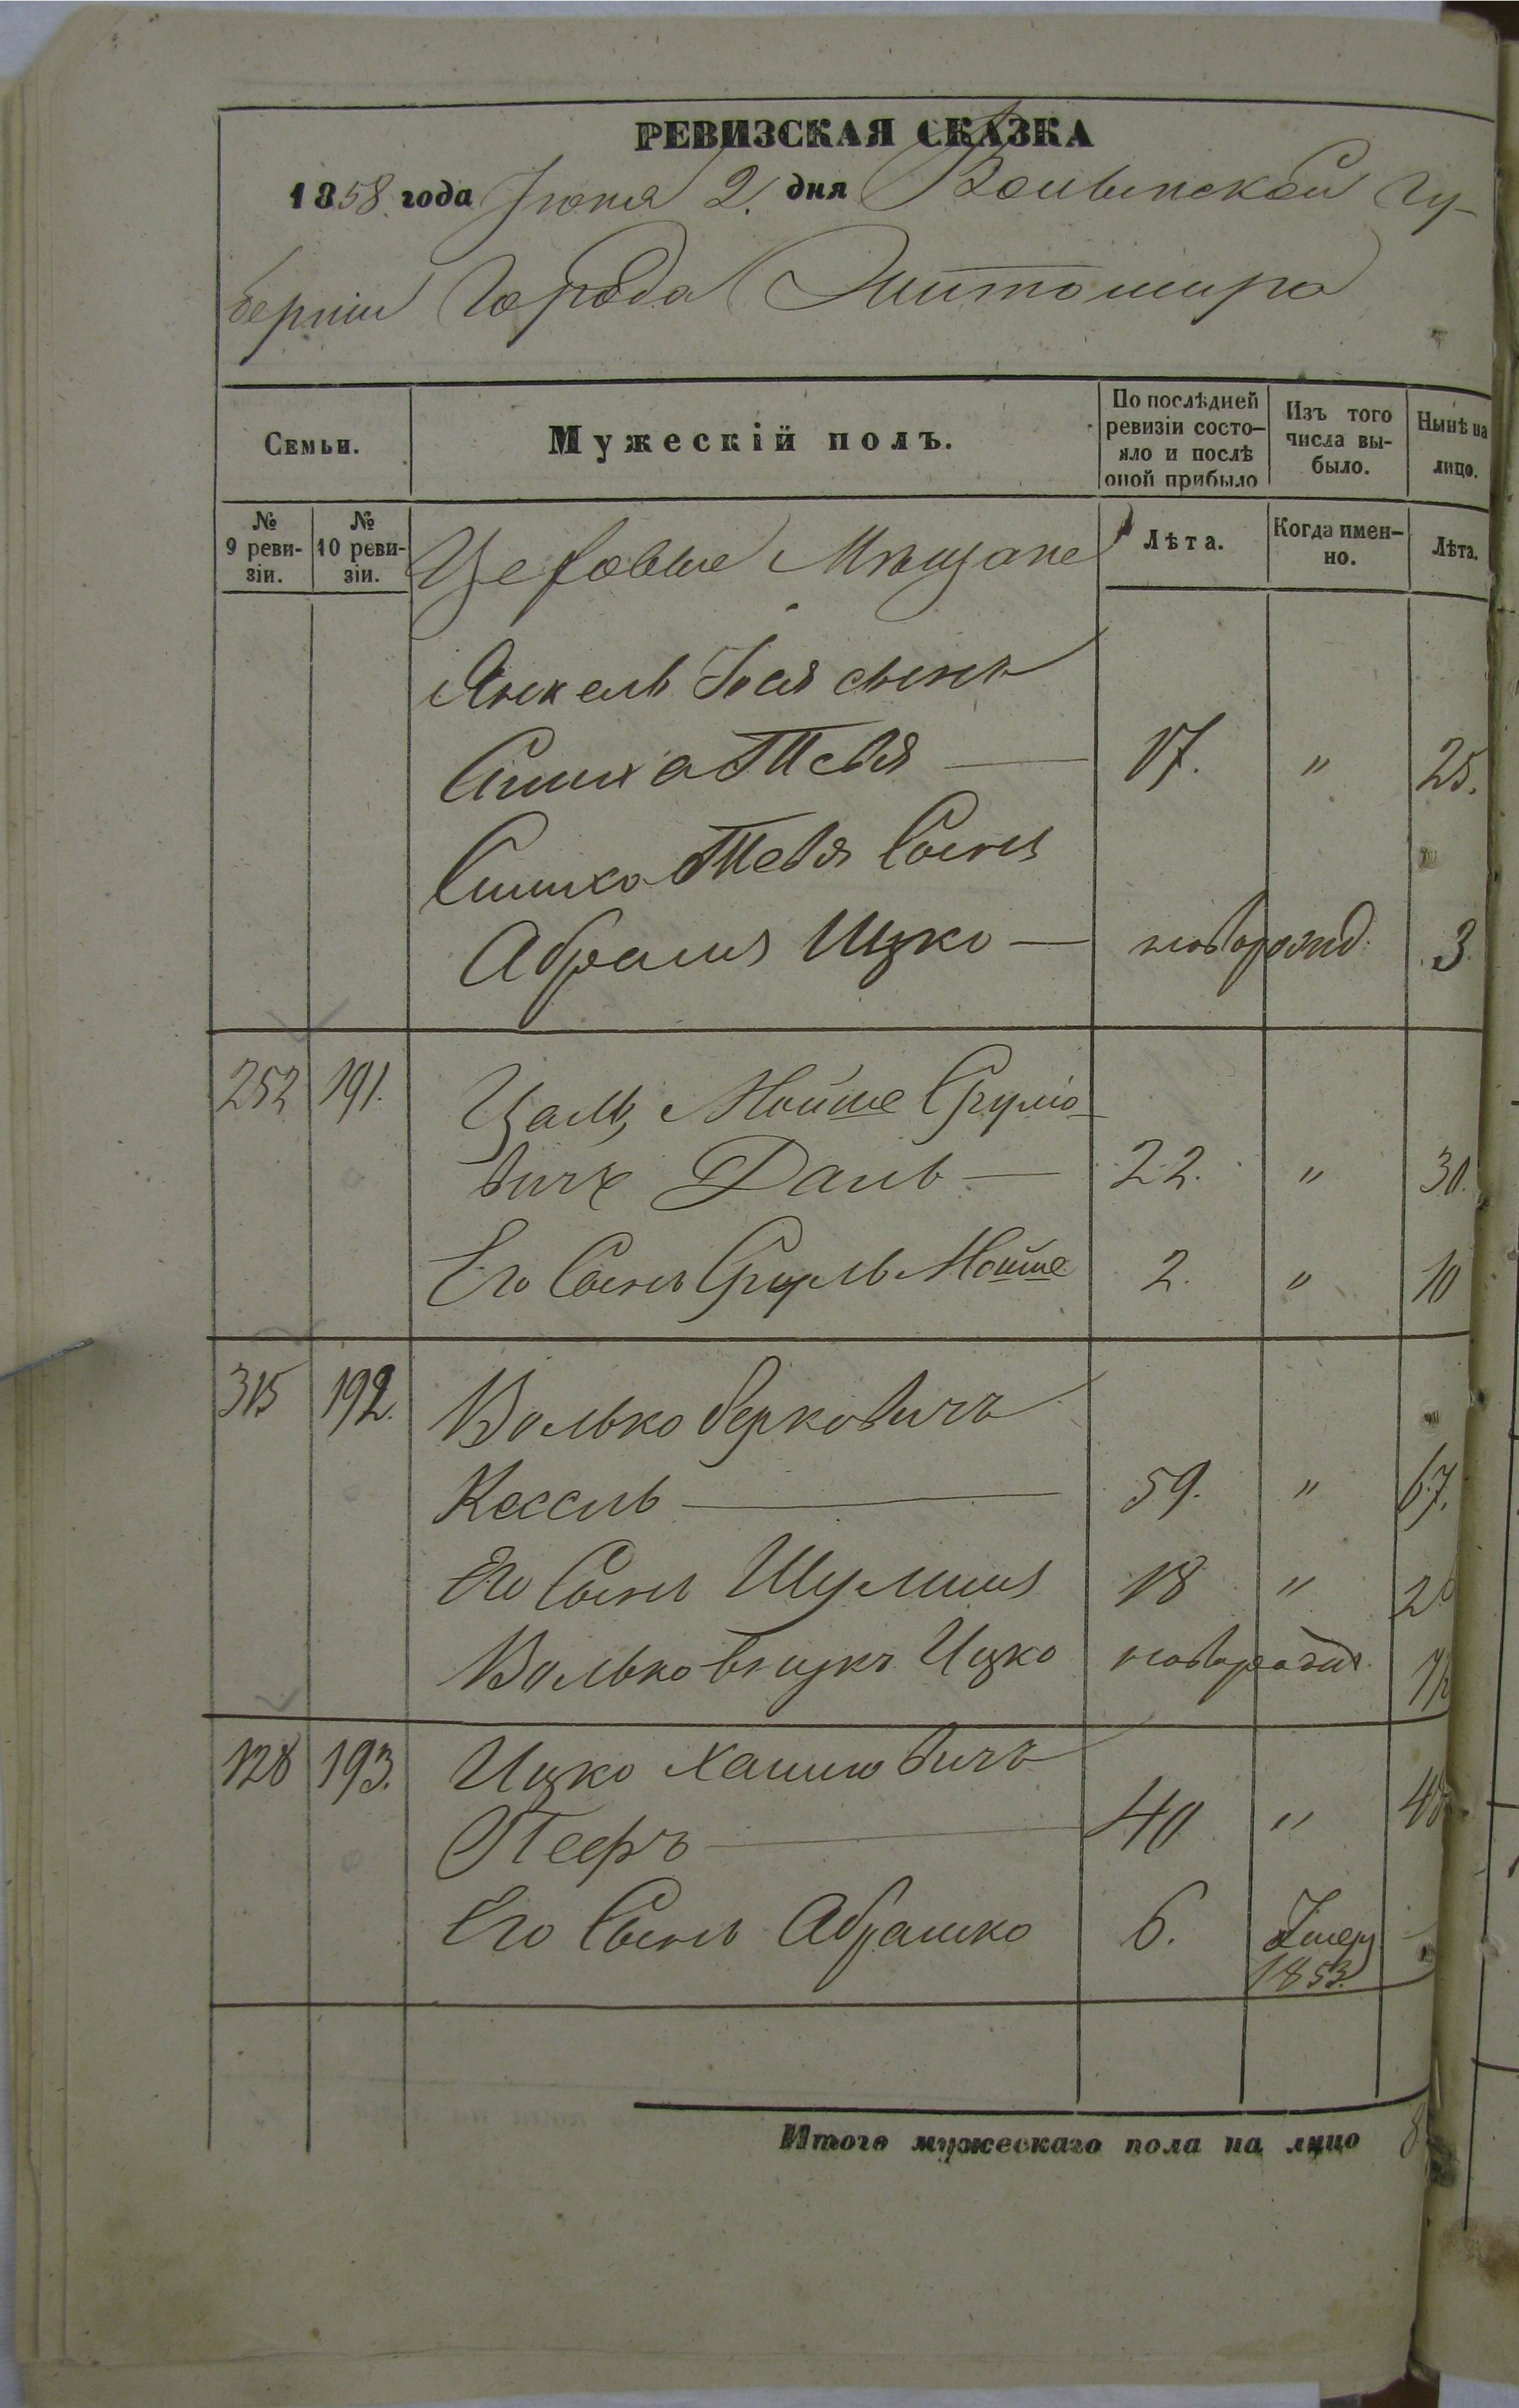 РЕВИЗСКАЯ СКАЗКА
1858 года Іюня 2. дня Волынской гу-
берніи Города Житомира
Семьи.
Мужескій полъ.
По послѣдней ревизіи состо-
яло и послѣ оной прибыло
Изъ того числа вы-
было.
Нынѣ на лицо.
№ 9 реви-
зіи.
№ 10 реви-
зіи.
Цеховые Мѣщане
Лѣта.
Когда имен-
но.
Лѣта.
Янкель сынъ
Симха Тевя — 17. " 25.
Симхо Тевя Сынъ
Абрамъ Ицко — новорожд. 3.
252 191. Мойше Срулю-
вичъ — 22. " 30.
Его Сынъ Сруль Мойше 2. " 10
315 192. Волько Берковичъ
Кессель — 59. " 67.
Его Сынъ Шулимъ 18 "
Волько внукъ Ицко новорожд.
128 193. Ицко Хаимовичъ
— 40 " 48
Его Сынъ Абрамко 6. Умеръ
1853.
Итого мужескаго пола на лицо 8